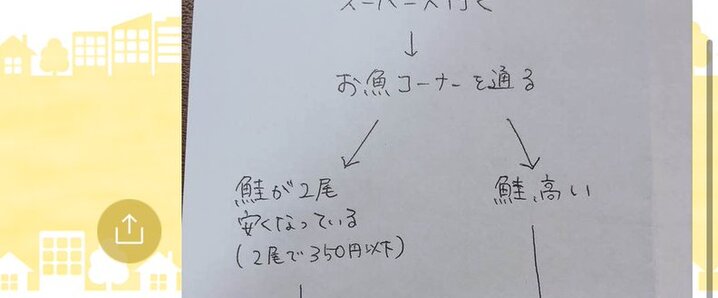 スーパーへ行く
お魚コーナーを通る
鮭が2尾
安くなっている
(2尾で350円以下)
鮭、高い